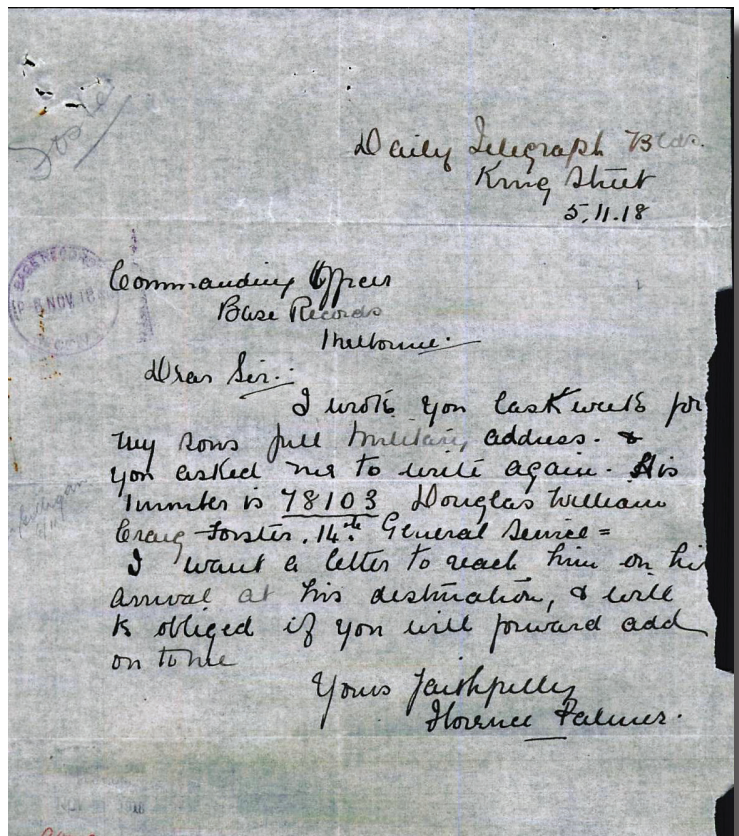 Daily Telegraph Bldg.
King Street
5.11.18
BASE RECORDS
6 NOV. 18
Commanding Officer
Base Records
Melbourne.
Dear Sir:-
I wrote you last week for
my sons full Military address. &
you asked me to write again. His
number is 78103 Douglas William
Craig-Forster. 14th General Service =
I want a letter to reach him on hi
arrival at his destination, & will
be obliged if you will forward add
on to me
Yours faithfully
Florence Palmer.